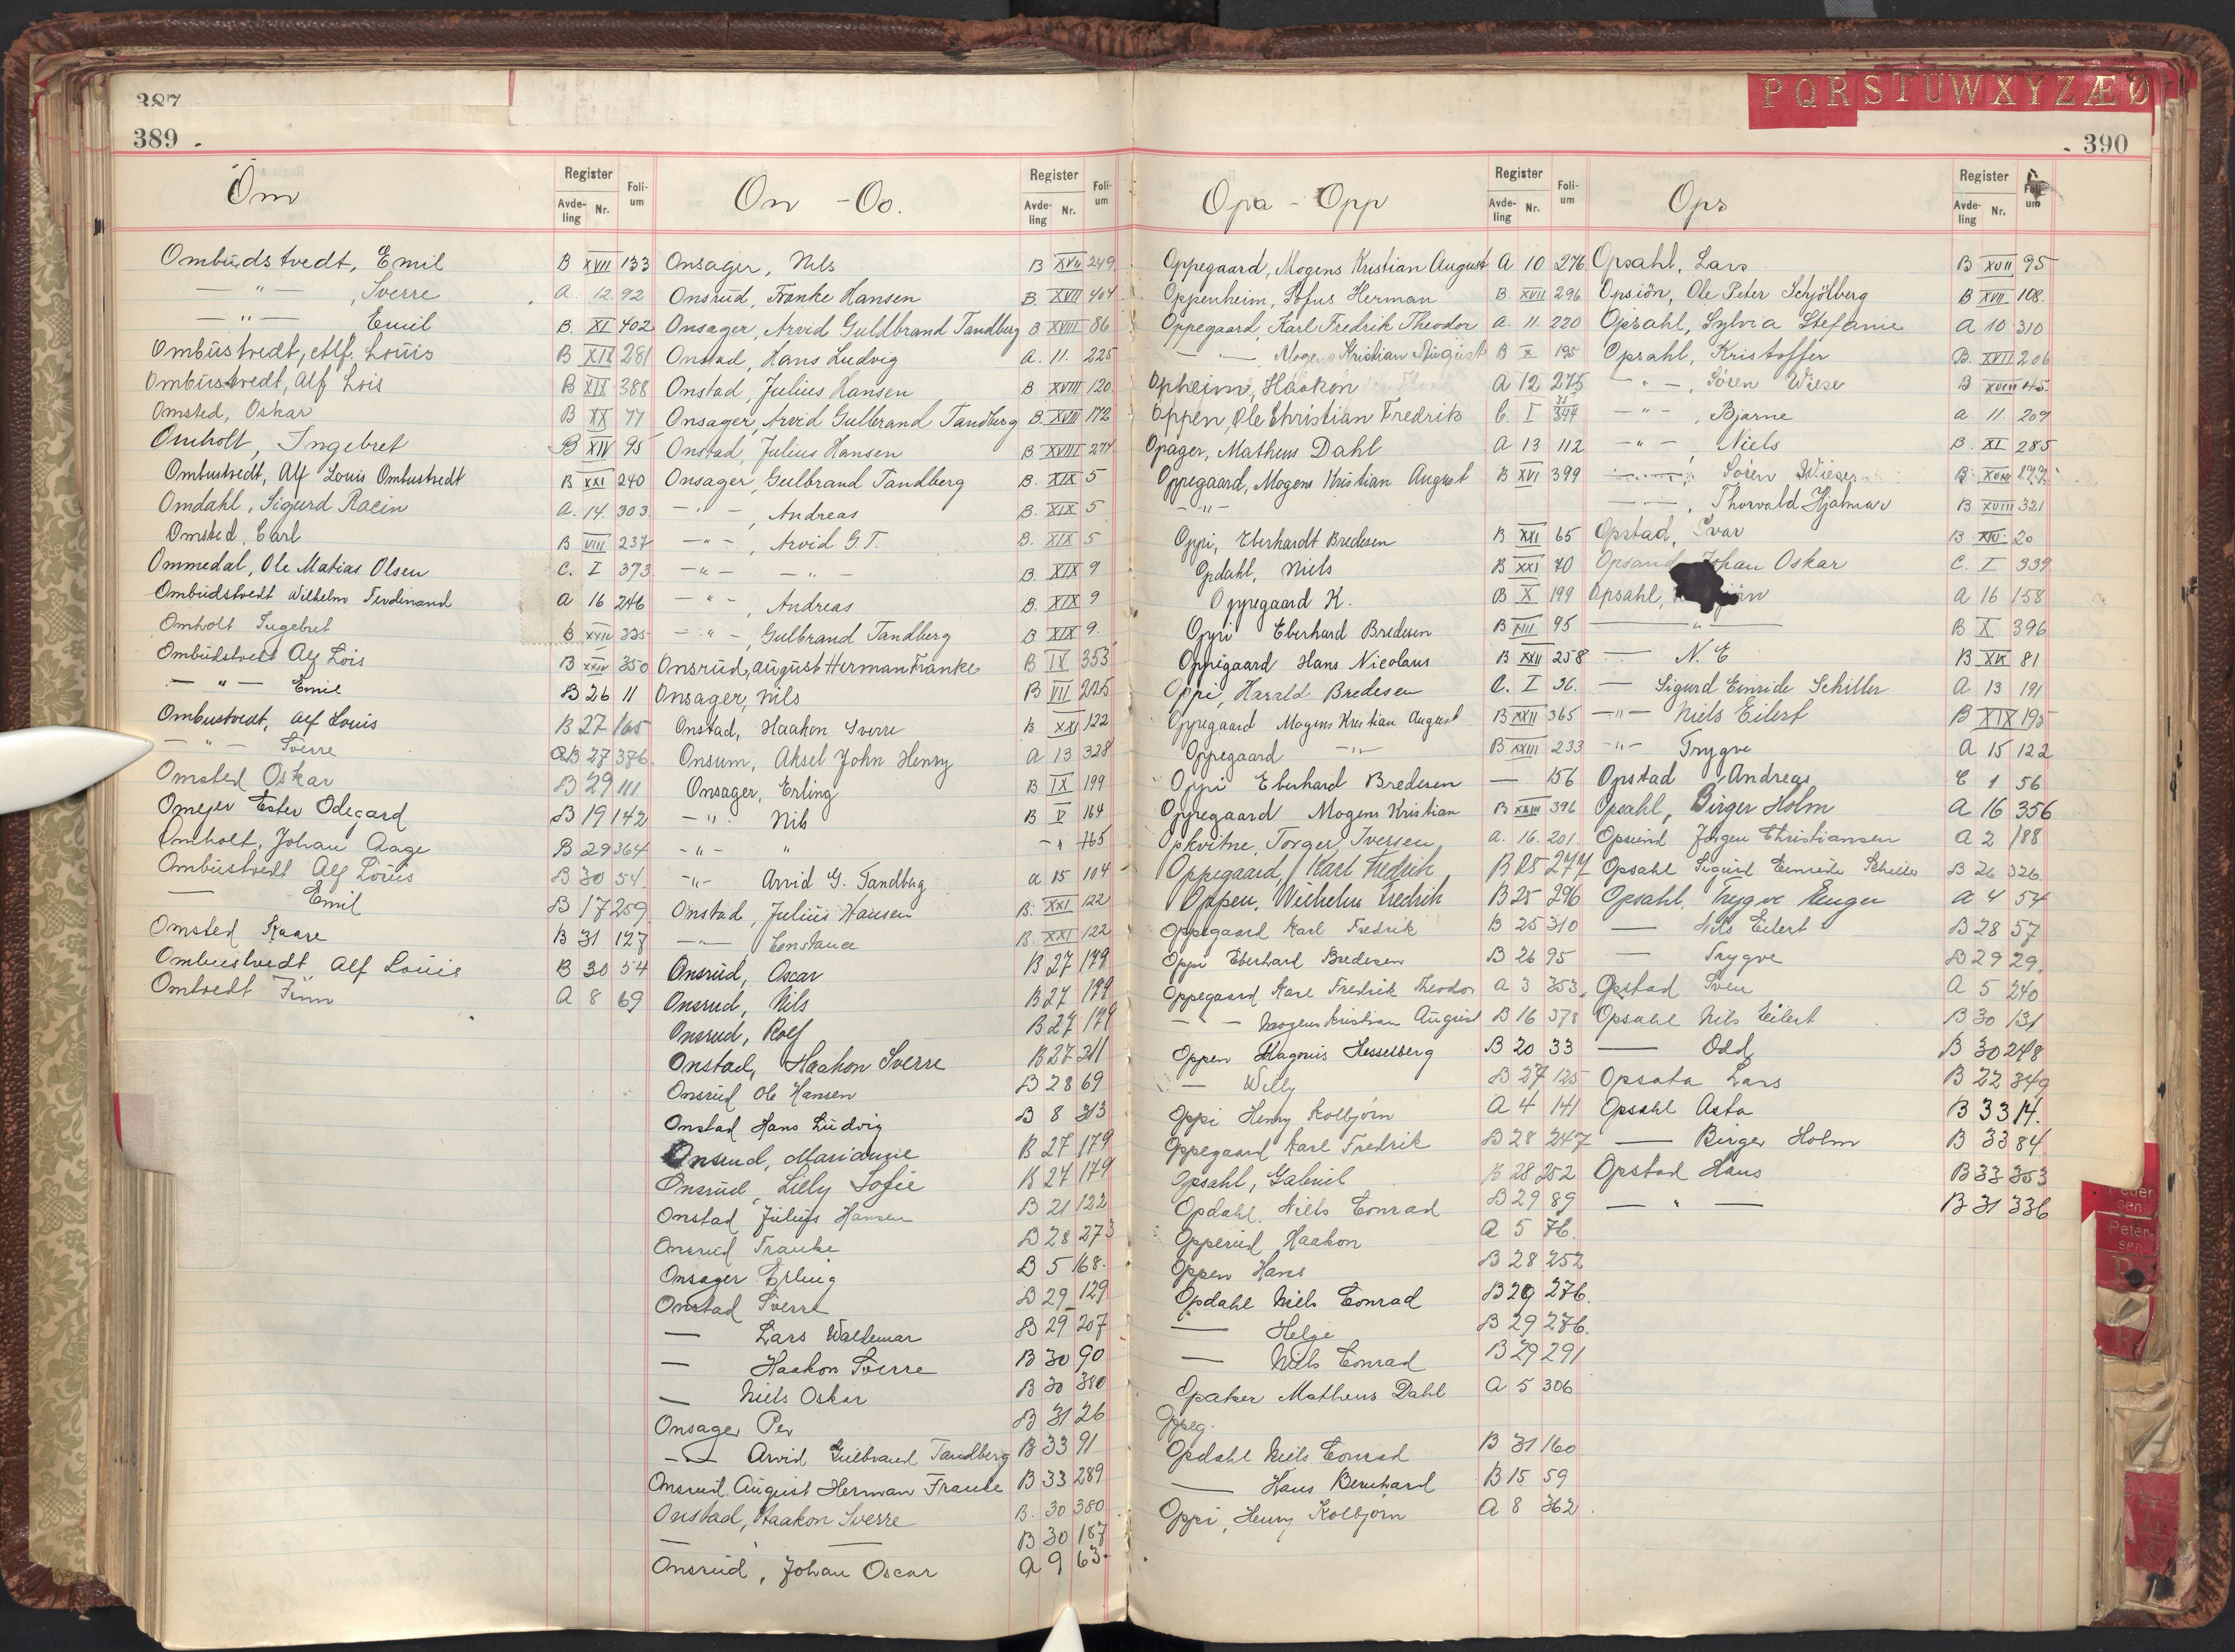 387
389
Om
Register
Avde-ling Nr. Foli-um
Ombudstvedt, Emil B XVII 133
— " — , Sverre A. 12. 92
— " — Emil B. XI 402
Ombustvedt, Alf. Louis B XIX 281
Ombustvedt, Alf Lois B XIX 388
Omsted, Oskar B XX 77
Omholt, Ingebret B XIV 95
Ombustvedt, Alf Louis Ombustvedt B XXI 240
Omdahl, Sigurd Racin A. 14. 303
Omsted, Carl B VIII 237
Ommedal, Ole Matias Olsen C. I 373
Ombudstvedt Wilhelm Ferdinand A 16 246
Omholt Ingebret B XXIV 335
Ombudstvedt Alf Lois B XXIV 350
— " — Emil B 26 11
Ombustvedt, Alf Louis B 27 165
— " — Sverre B 27 376
Omsted Oskar B 29 111
Omejer Ester Ödegard B 19 142
Omholt, Johan Aage B 29 364
Ombustvedt Alf Louis B 30 54
— Emil B 17 259
Omsted Kaare B 31 127
Ombustvedt Alf Louis B 30 54
Omtvedt Finn A 8 69
On - Oo.
Register
Avde-ling Nr. Foli-um
Onsager, Nils B XVII 249
Onsrud, Franke Hansen B. XVII 404
Onsager, Arvid Guldbrand Tandberg B XVIII 86
Onstad, Hans Ludvig A. 11. 225
Onstad, Julius Hansen B. XVIII 120
Onsager, Arvid Gulbrand Tandberg B. XVIII 172
Onstad, Julius Hansen B XVIII 274
Onsager, Gulbrand Tandberg B. XIX 5
— " — , Andreas B. XIX 5
— " — , Arvid G. T. B. XIX 5
— " — — " — B. XIX 9
— " — , Andreas B. XIX 9
— " — , Gulbrand Tandberg B XIX 9.
Onsrud, August Herman Franke B IX 353
Onsager, Nils B VII 225
Onstad, Haakon Sverre B XXI 122
Onsum, Aksel John Henry A 13 328
Onsager, Erling B IX 199
— " — Nils B V 164
— " — " — " 165
— " — Arvid G. Tandbrg A 15 104
Onstad, Julius Hansen B. XXI 122
— " — Constance B. XXI 122
Onsrud, Oscar B 27 179
Onsrud, Nils B 27 179
Onsrud, Rolf B 27 179
Onstad, Haakon Sverre B 27 311
Onsrud Ole Hansen B 28 69
Onstad Hans Ludvig B 8 313
Onsrud, Marianne B 27 179
Onsrud, Lilly Sofie B 27 179
Onstad Julius Hansen B 21 122
Onsrud Franke B 28 273
Onsager Erling B 5 168.
Onstad Sverre B 29 129
— Lars Waldemar B 29 207
— Haakon Sverre B 30 90
— Niels Oskar B 30 380
Onsager Per B 31 26
— " — Arvid Gulbrand Tandberg B 33 91
Onsrud August Herman Franke B 33 289
Onstad, Haakon Sverre B. 30 380
— — B 30 187
Onsrud, Johan Oscar A 9 63.
P Q R S T U W X Y Z Æ Ø
390
Opa - Opp
Register
Avde-ling Nr. Foli-um
Oppegaard, Mogens Kristian August A 10 276
Oppenheim, Sofus Herman B XVII 296
Oppegaard, Karl Fredrik Theodor A. 11. 220
— " — , Mogens Kristian August B X 195
Opheim, Haakon A 12 275
Oppen, Ole Christian Fredrik C. I 347
Opager, Matheus Dahl A 13 112
Oppegaard, Mogens Kristian August B XVI 399
— " —
Oppi, Eberhardt Bredesen B XXI 65
Opdahl, Niels B XXI 70
Oppegaard K. B X 199
Oppi Eberhard Bredesen B XIII 95
Oppegaard Hans Nicolaus B XXII 258
Oppi, Harald Bredesen C. I 36.
Oppegaard Mogens Kristian August B XXII 365
Oppegaard — " — B XXIII 233
Oppi Eberhard Bredesen — 156
Oppegaard Mogens Kristian B XXIII 396
Opkvitne, Torger Iversen A. 16. 201.
Oppegaard, Karl Fredrik B 25 277
Oppen, Wilhelm Fredrik B 25 296
Oppegaard Karl Fredrik B 25 310
Oppi Eberhard Bredesen B 26 95
Oppegaard Karl Fredrik Theodor A 3 353
— — Mogens Kristian August B 16 378
Oppen Magnus Hesselberg B 20 33
— Willy B 27 125
Oppi Henry Kolbjörn A 4 141
Oppegaard Karl Fredrik B 28 247
Opsahl, Gabriel B 28 252
Opdahl, Niels Conrad B 29 89
Opperud Haakon A 5 76.
Oppen Hans B 28 252
Opdahl Niels Conrad B 29 276.
— Helge B 29 276.
— Niels Conrad B 29 291
Opaker Matheus Dahl A 5 306
Oppeg.
Opdahl Niels Conrad B 31 160
— Hans Bernhard B 15 59
Oppi, Henry Kolbjørn A 8 362
Ops
Register
Avde-ling Nr. Foli-um
Opsahl, Lars B XVII 95
Opsiön, Ole Peter Schjölberg B XVII 108.
Opsahl, Sylvia Stefanie A 10 310
Opsahl, Kristoffer B. XVII 206
— " — , Sören Wiese B XVIII 45.
— " — , Bjarne A. 11. 209
— " — , Niels B. XI 285
— " — , Sören Wieser B. XVIII 177
— " — , Thorvald Hjalmar B XVIII 321
Opstad, Ivar B XIV 20
Opsand Johan Oskar C. I 339
Opsahl, A 16 158
— " — B X 396
— N. E B XIX 81
— Sigurd Emride Schiller A 13 191
— " — Niels Eilert B XIX 195
— " — Trygve A 15 122
Opstad, Andreas C 1 56
Opsahl, Birger Holm A 16 356
Opsund Jörgen Christiansen A 2 188
Opsahl Sigurd Emride Schiller B 26 326.
Opsahl, Trygve Eugen A 4 54
— Nils Eilert B 28 57
— Trygve B 29 29.
Opstad Sven A 5 240
Opsahl Nils Eilert B 30 131
— Odd B 30 248
Opsata Lars B 22 349
Opsahl Asta B 33 14.
— Birger Holm B 33 84
Opstad Hans B 33 353
— " — B 31 336
Peter-sen